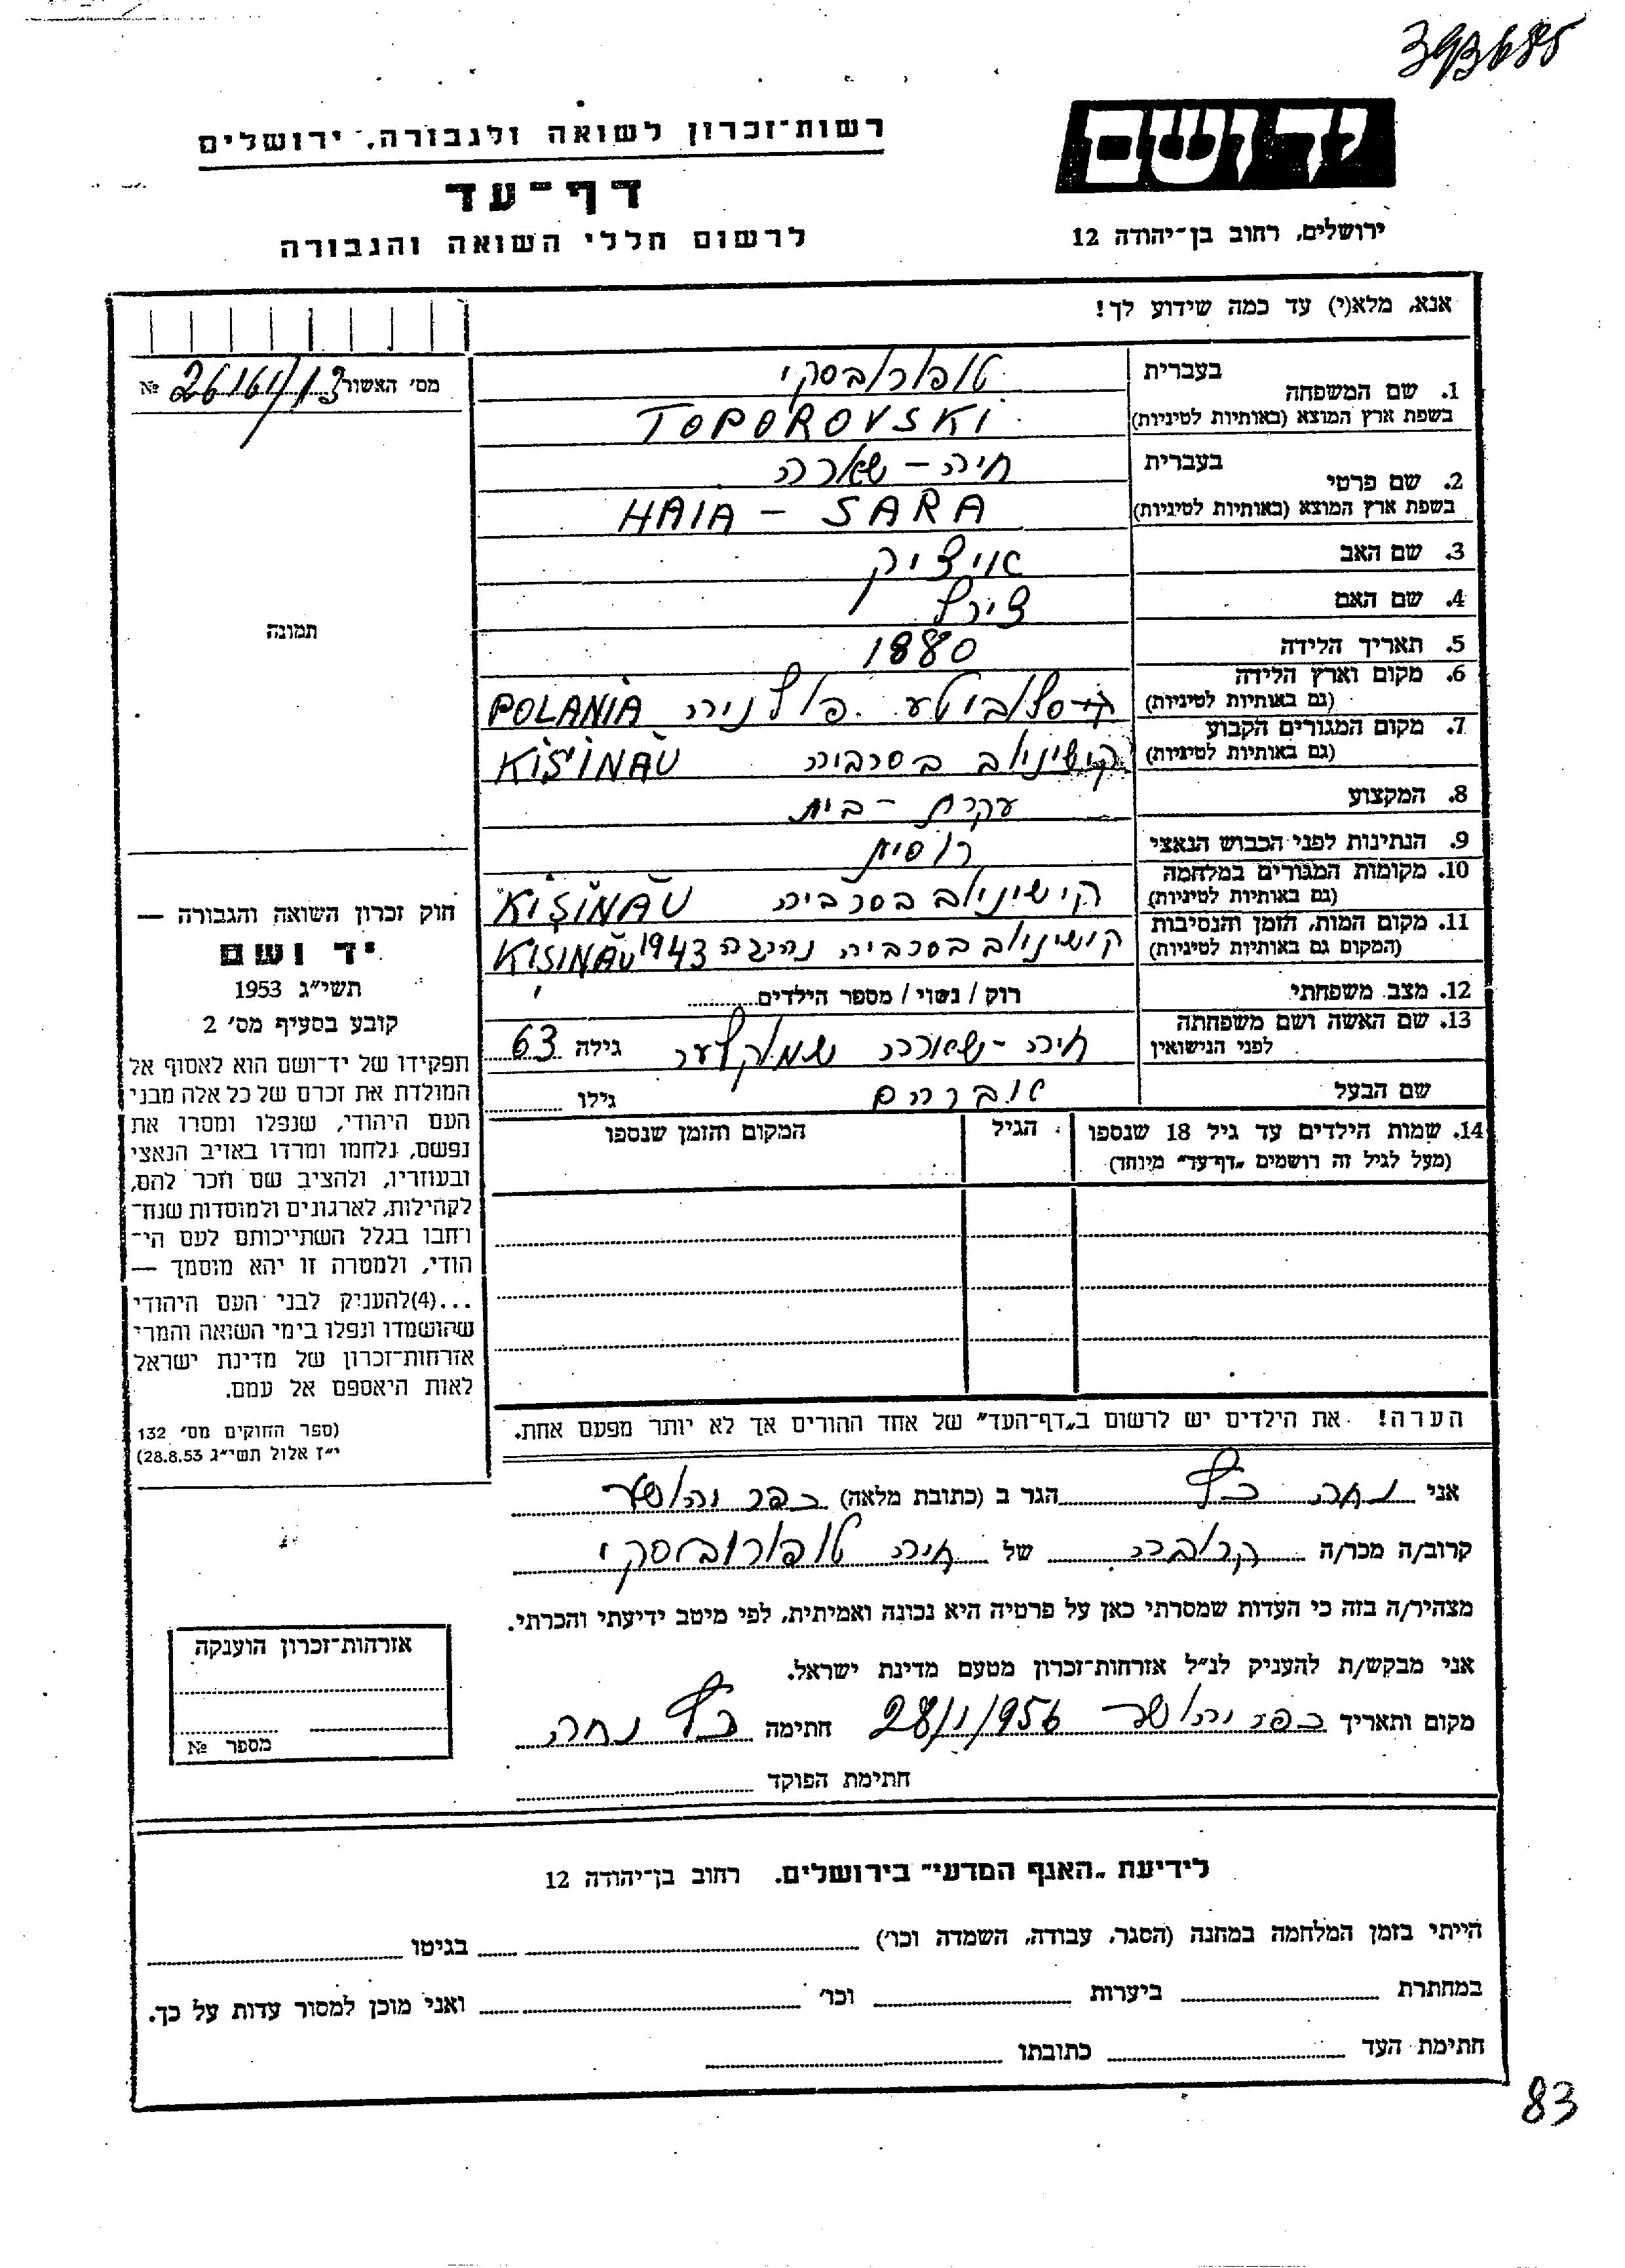 393685
יד ושם
רשות־זכרון לשואה ולגבורה, ירושלים
דף־עד
לרשום חללי השואה והגבורה
ירושלים, רחוב בן־יהודה 12
אנא, מלא(י) עד כמה שידוע לך!
מס' האשור 26161/13 №
תמונה
1. שם המשפחה בעברית טופורובסקי
בשפת ארץ המוצא (באותיות לטיניות) TOPOROVSKI
2. שם פרטי בעברית חיה - שארה
בשפת ארץ המוצא (באותיות לטיניות) HAIA - SARA
3. שם האב איציק
4. שם האם צירל
5. תאריך הלידה 1880
6. מקום וארץ הלידה (גם באותיות לטיניות) פולניה POLANIA
7. מקום המגורים הקבוע (גם באותיות לטיניות) קישינוב בסרביה KIŞINĂU
8. המקצוע עקרת - בית
9. הנתינות לפני הכבוש הנאצי רוסית
10. מקומות המגורים במלחמה (גם באותיות לטיניות) קישינוב בסרביה KIŞINĂU
11. מקום המות, הזמן והנסיבות (המקום גם באותיות לטיניות) קישינוב בסרביה נהרגה 1943 KISINĂU
12. מצב משפחתי רוק / נשוי / מספר הילדים
13. שם האשה ושם משפחתה לפני הנישואין חיה - שארה גילה 63
שם הבעל אברהם גילו
14. שמות הילדים עד גיל 18 שנספו הגיל המקום והזמן שנספו
(מעל לגיל זה רושמים „דף־עד" מיוחד)
הערה! את הילדים יש לרשום ב„דף־העד" של אחד ההורים אך לא יותר מפעם אחת.
חוק זכרון השואה והגבורה —
יד ושם
תשי"ג 1953
קובע בסעיף מס' 2
תפקידו של יד־ושם הוא לאסוף אל
המולדת את זכרם של כל אלה מבני
העם היהודי, שנפלו ומסרו את
נפשם, נלחמו ומרדו באויב הנאצי
ובעוזריו, ולהציב שם וזכר להם,
לקהילות, לארגונים ולמוסדות שנח־
רבו בגלל השתייכותם לעם הי־
הודי, ולמטרה זו יהא מוסמך —
...(4)להעניק לבני העם היהודי
שהושמדו ונפלו בימי השואה והמרי
אזרחות־זכרון של מדינת ישראל
לאות היאספם אל עמם.
(ספר החוקים מס' 132
י"ז אלול תשי"ג 28.8.53)
אני נחה כץ הגר ב (כתובת מלאה) כפר יהושע
קרוב/ה מכר/ה קרובה של חיה טופורובסקי
מצהיר/ה בזה כי העדות שמסרתי כאן על פרטיה היא נכונה ואמיתית, לפי מיטב ידיעתי והכרתי.
אני מבקש/ת להעניק לנ"ל אזרחות־זכרון מטעם מדינת ישראל.
מקום ותאריך כפר יהושע 28/1/1956 חתימה כץ נחה
חתימת הפוקד
אזרהות־זכרון הוענקה
מספר №
לידיעת „האגף המדעי" בירושלים. רחוב בן־יהודה 12
הייתי בזמן המלחמה במחנה (הסגר, עבודה, השמדה וכו') בגיטו
במחתרת ביערות וכו' ואני מוכן למסור עדות על כך.
חתימת העד כתובתו
83